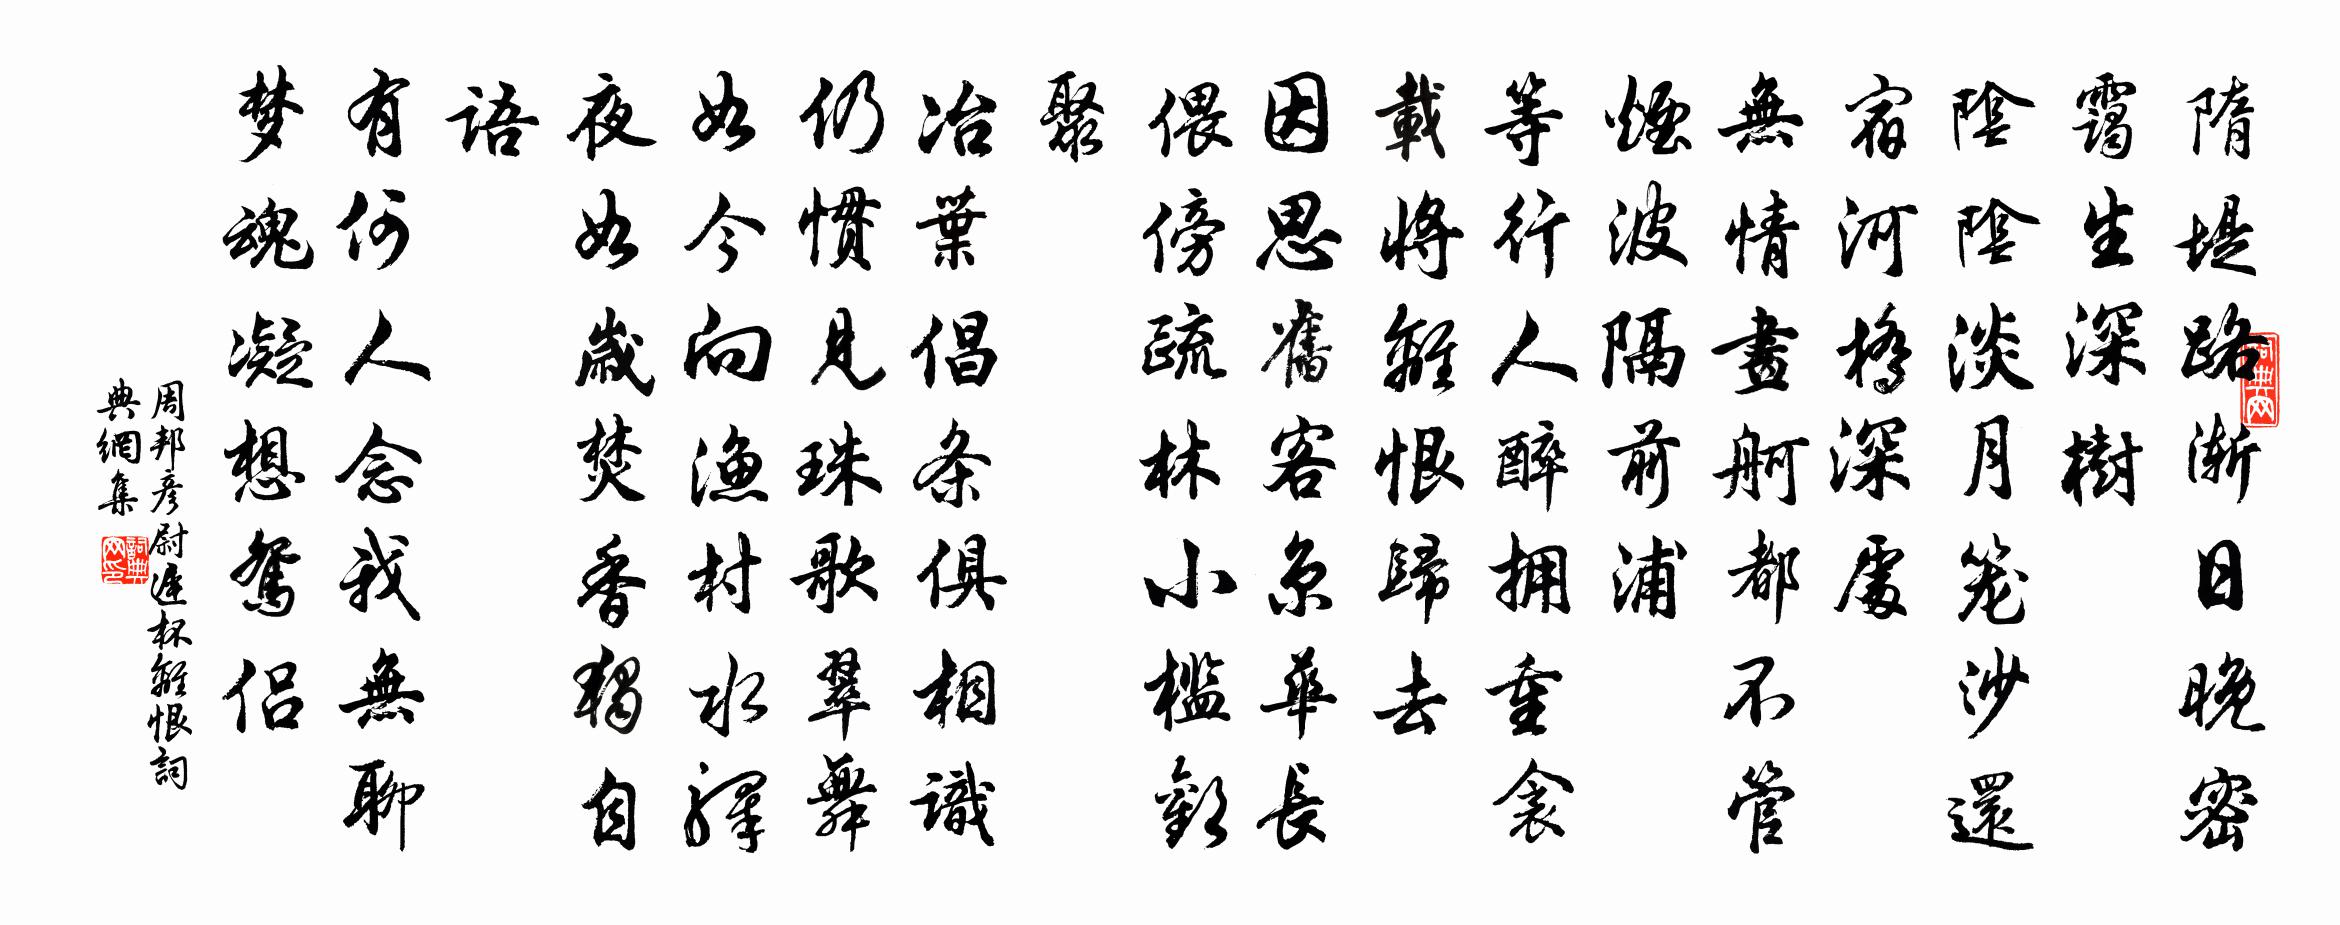 隋堤路漸日晚密
靄生深樹
陰陰淡月笼沙還
宿河橋深處
無情畫舸都不管
煙波隔前浦
等行人醉拥重衾
載將離恨歸去
因思舊客京華長
偎傍疏林小檻歡
聚
冶葉倡条俱相識
仍慣見珠歌翠舞
如今向漁村水驛
夜如歲焚香獨自
語
有何人念我無聊
梦魂凝想鴛侣
周邦彦尉遲杯離恨詞
典網集